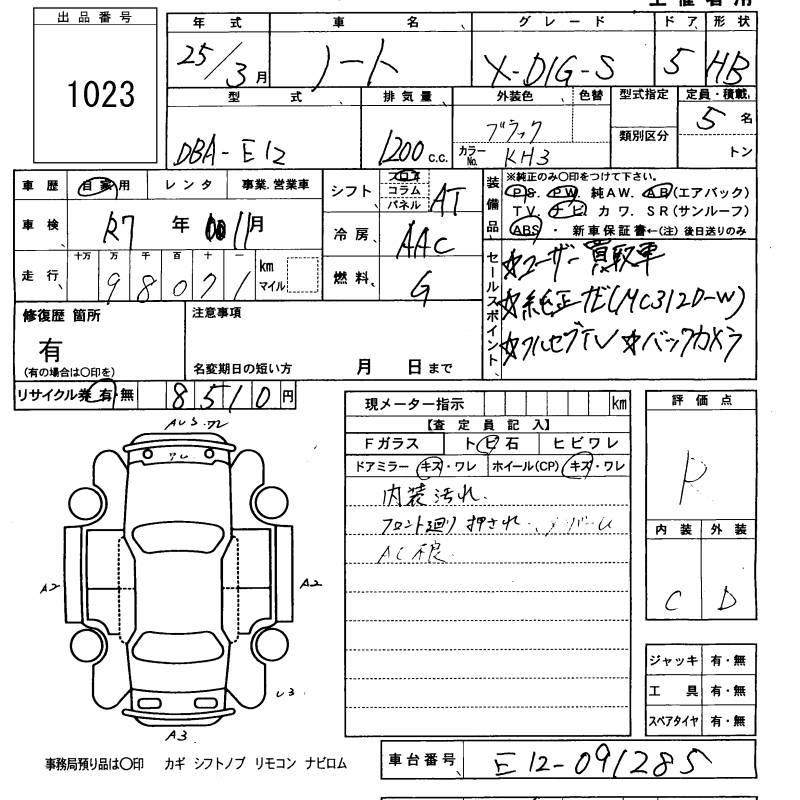 出品番号
1023
年式 車名 グレード ドア 形状
25/3月 ノート X-DIG-S 5 HB
型式 排気量 外装色 色替 型式指定 定員・積載
DBA-E12 1200 c.c. ブラック 5名
カラーNo. KH3 類別区分 トン
車歴 自家用 レンタ 事業.営業車
シフト フロア コラム パネル AT
装備品 ※純正のみ〇印をつけて下さい。
PS. PW. 純AW. AB(エアバック)
TV. ナビ カワ. SR(サンルーフ)
ABS ・ 新車保証書←(注) 後日送りのみ
車検 R7年 11月
冷房 AAC
走行 十万 万 千 百 十 一
98071 km マイル
燃料 G
セールスポイント
☆ユーザー買取車
☆純正ナビ(MC312D-W)
☆フルセグTV ☆バックカメラ
修復歴 箇所
有
(有の場合は〇印を)
注意事項
名変期日の短い方 月 日まで
リサイクル券 有・無 8510円
現メーター指示 km
【査定員記入】
Fガラス トビ石 ヒビワレ
ドアミラー キズ・ワレ ホイール(CP) キズ・ワレ
内装汚れ.
フロント廻り押され.
AC不良
評価点
R
内装 外装
C D
A2
A2
U3
A3
ジャッキ 有・無
工具 有・無
スペアタイヤ 有・無
事務局預り品は〇印 カギ シフトノブ リモコン ナビロム
車台番号 E12-091285